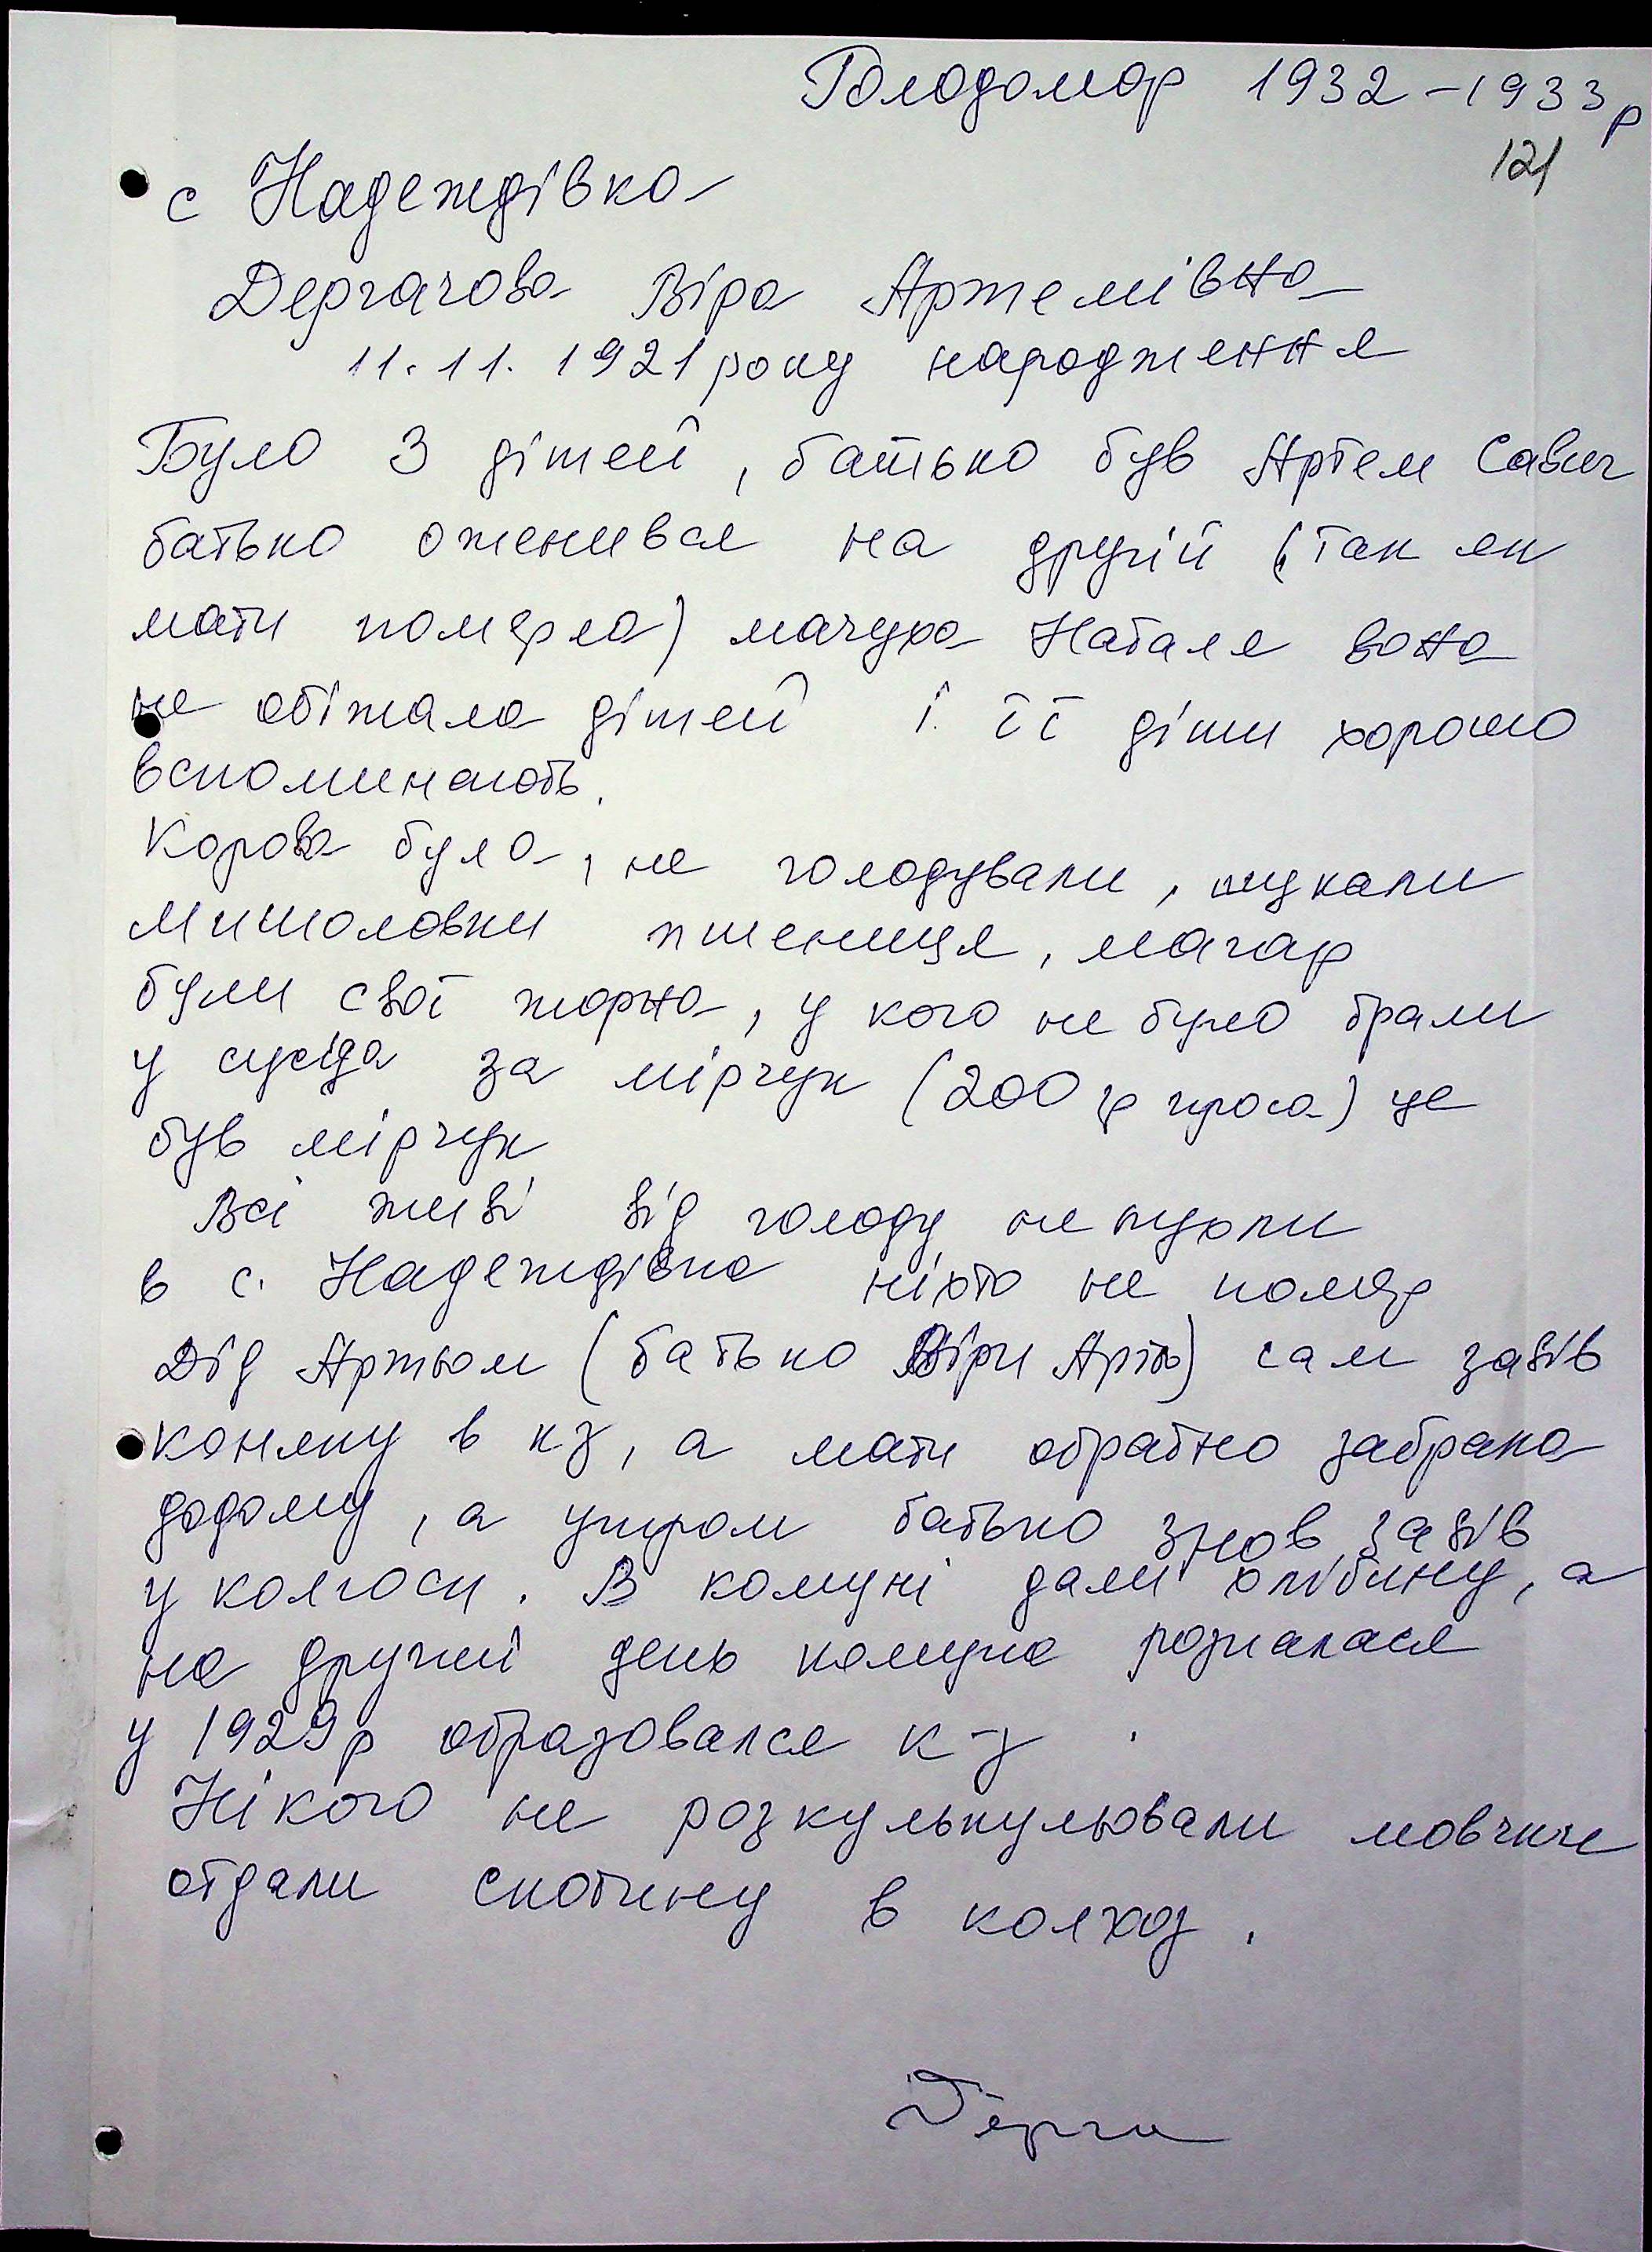 Голодомор 1932-1933р
121
с Надеждівка
Дергачова Віра Артемівна
11.11.1921 року народження
Було 3 дітей, батько був Артем Савич
батько оженився на другій (так як
мати померла) мачуха Наталя вона
не обіжала дітей і її діти хорошо
вспоминають.
Корова була, не голодували, шукали
мишоловки пшениця, магар
були свої жорна, у кого не було брали
у сусіда за мірчук (200 гр проса) це
був мірчук
Всі живі від голоду не пухли
в с. Надеждівка ніхто не помер
Дід Артьом (батько Віри Арт) сам завів
коняку в кз, а мати обратно забрала
додому, а утром батько знов завів
у колгосп. В комуні дали хлібину, а
на другий день комуна розпалася
у 1929р образовался к-з
Нікого не розкулькулювали мовчки
отдали скотину в колхоз.